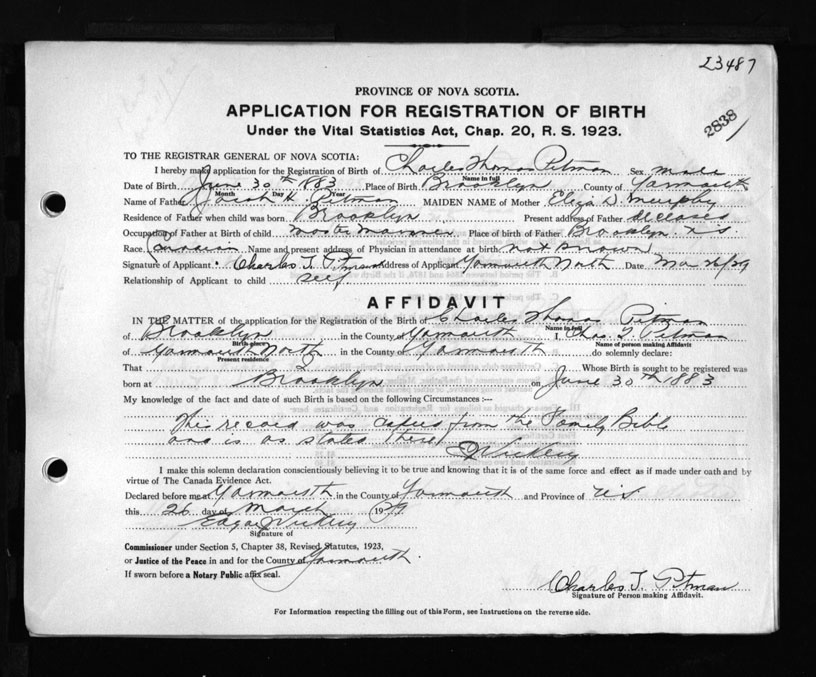 23487
PROVINCE OF NOVA SCOTIA.
APPLICATION FOR REGISTRATION OF BIRTH
2838
Under the Vital Statistics Act, Chap. 20, R. S. 1923.
TO THE REGISTRAR GENERAL OF NOVA SCOTIA:
I hereby make application for the Registration of Birth of Charles Thomas Pitman Sex male
Name in full
Date of Birth June 30th 1883 Place of Birth Brooklyn County of Yarmouth
Month Day Year
Name of Father Jacob H. Pitman MAIDEN NAME of Mother Eliza D. Murphy
Residence of Father when child was born Brooklyn Present address of Father deceased
Occupation of Father at Birth of child Master Mariner Place of birth of Father Brooklyn N.S.
Race Canadian Name and present address of Physician in attendance at birth not known
Signature of Applicant Charles T. Pitman Address of Applicant Yarmouth North Date Mar 26/29
Relationship of Applicant to child self
AFFIDAVIT
IN THE MATTER of the application for the Registration of the Birth of Charles Thomas Pitman
Name in full
of Brooklyn in the County of Yarmouth I, Chas T Pitman
Birth place Name of person making Affidavit
of Yarmouth North in the County of Yarmouth do solemnly declare:
Present residence
That Whose Birth is sought to be registered was
born at Brooklyn on June 30th 1883
My knowledge of the fact and date of such Birth is based on the following Circumstances :—
This record was copied from the Family Bible
and is as stated there
E Vickery
I make this solemn declaration conscientiously believing it to be true and knowing that it is of the same force and effect as if made under oath and by
virtue of The Canada Evidence Act.
Declared before me at Yarmouth in the County of Yarmouth and Province of N.S.
this 26 day of March 1929
Edgar Vickery
Signature of
Commissioner under Section 5, Chapter 38, Revised Statutes, 1923,
or Justice of the Peace in and for the County of Yarmouth.
If sworn before a Notary Public affix seal.
Charles T. Pitman
Signature of Person making Affidavit.
For Information respecting the filling out of this Form, see Instructions on the reverse side.